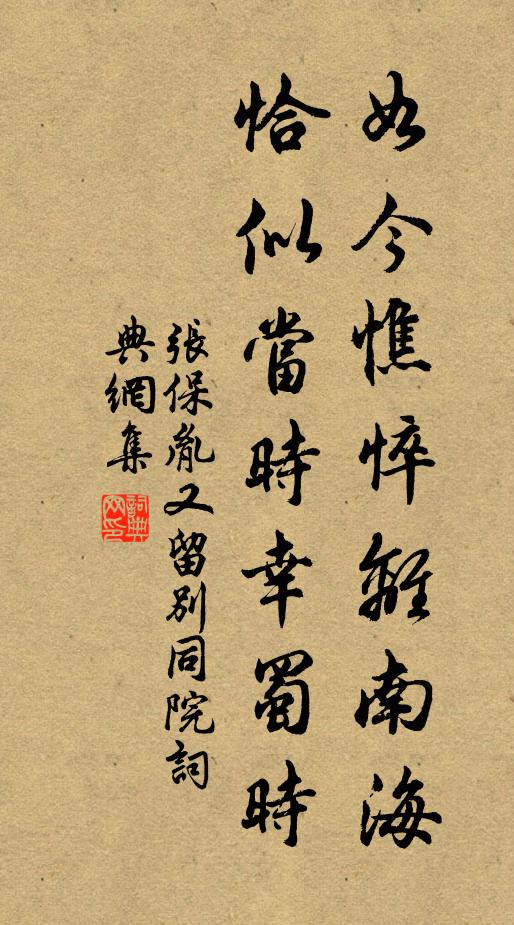 如今憔悴離南海
恰似當時幸蜀時
張保胤又留別同院詞
典網集
詞典網印